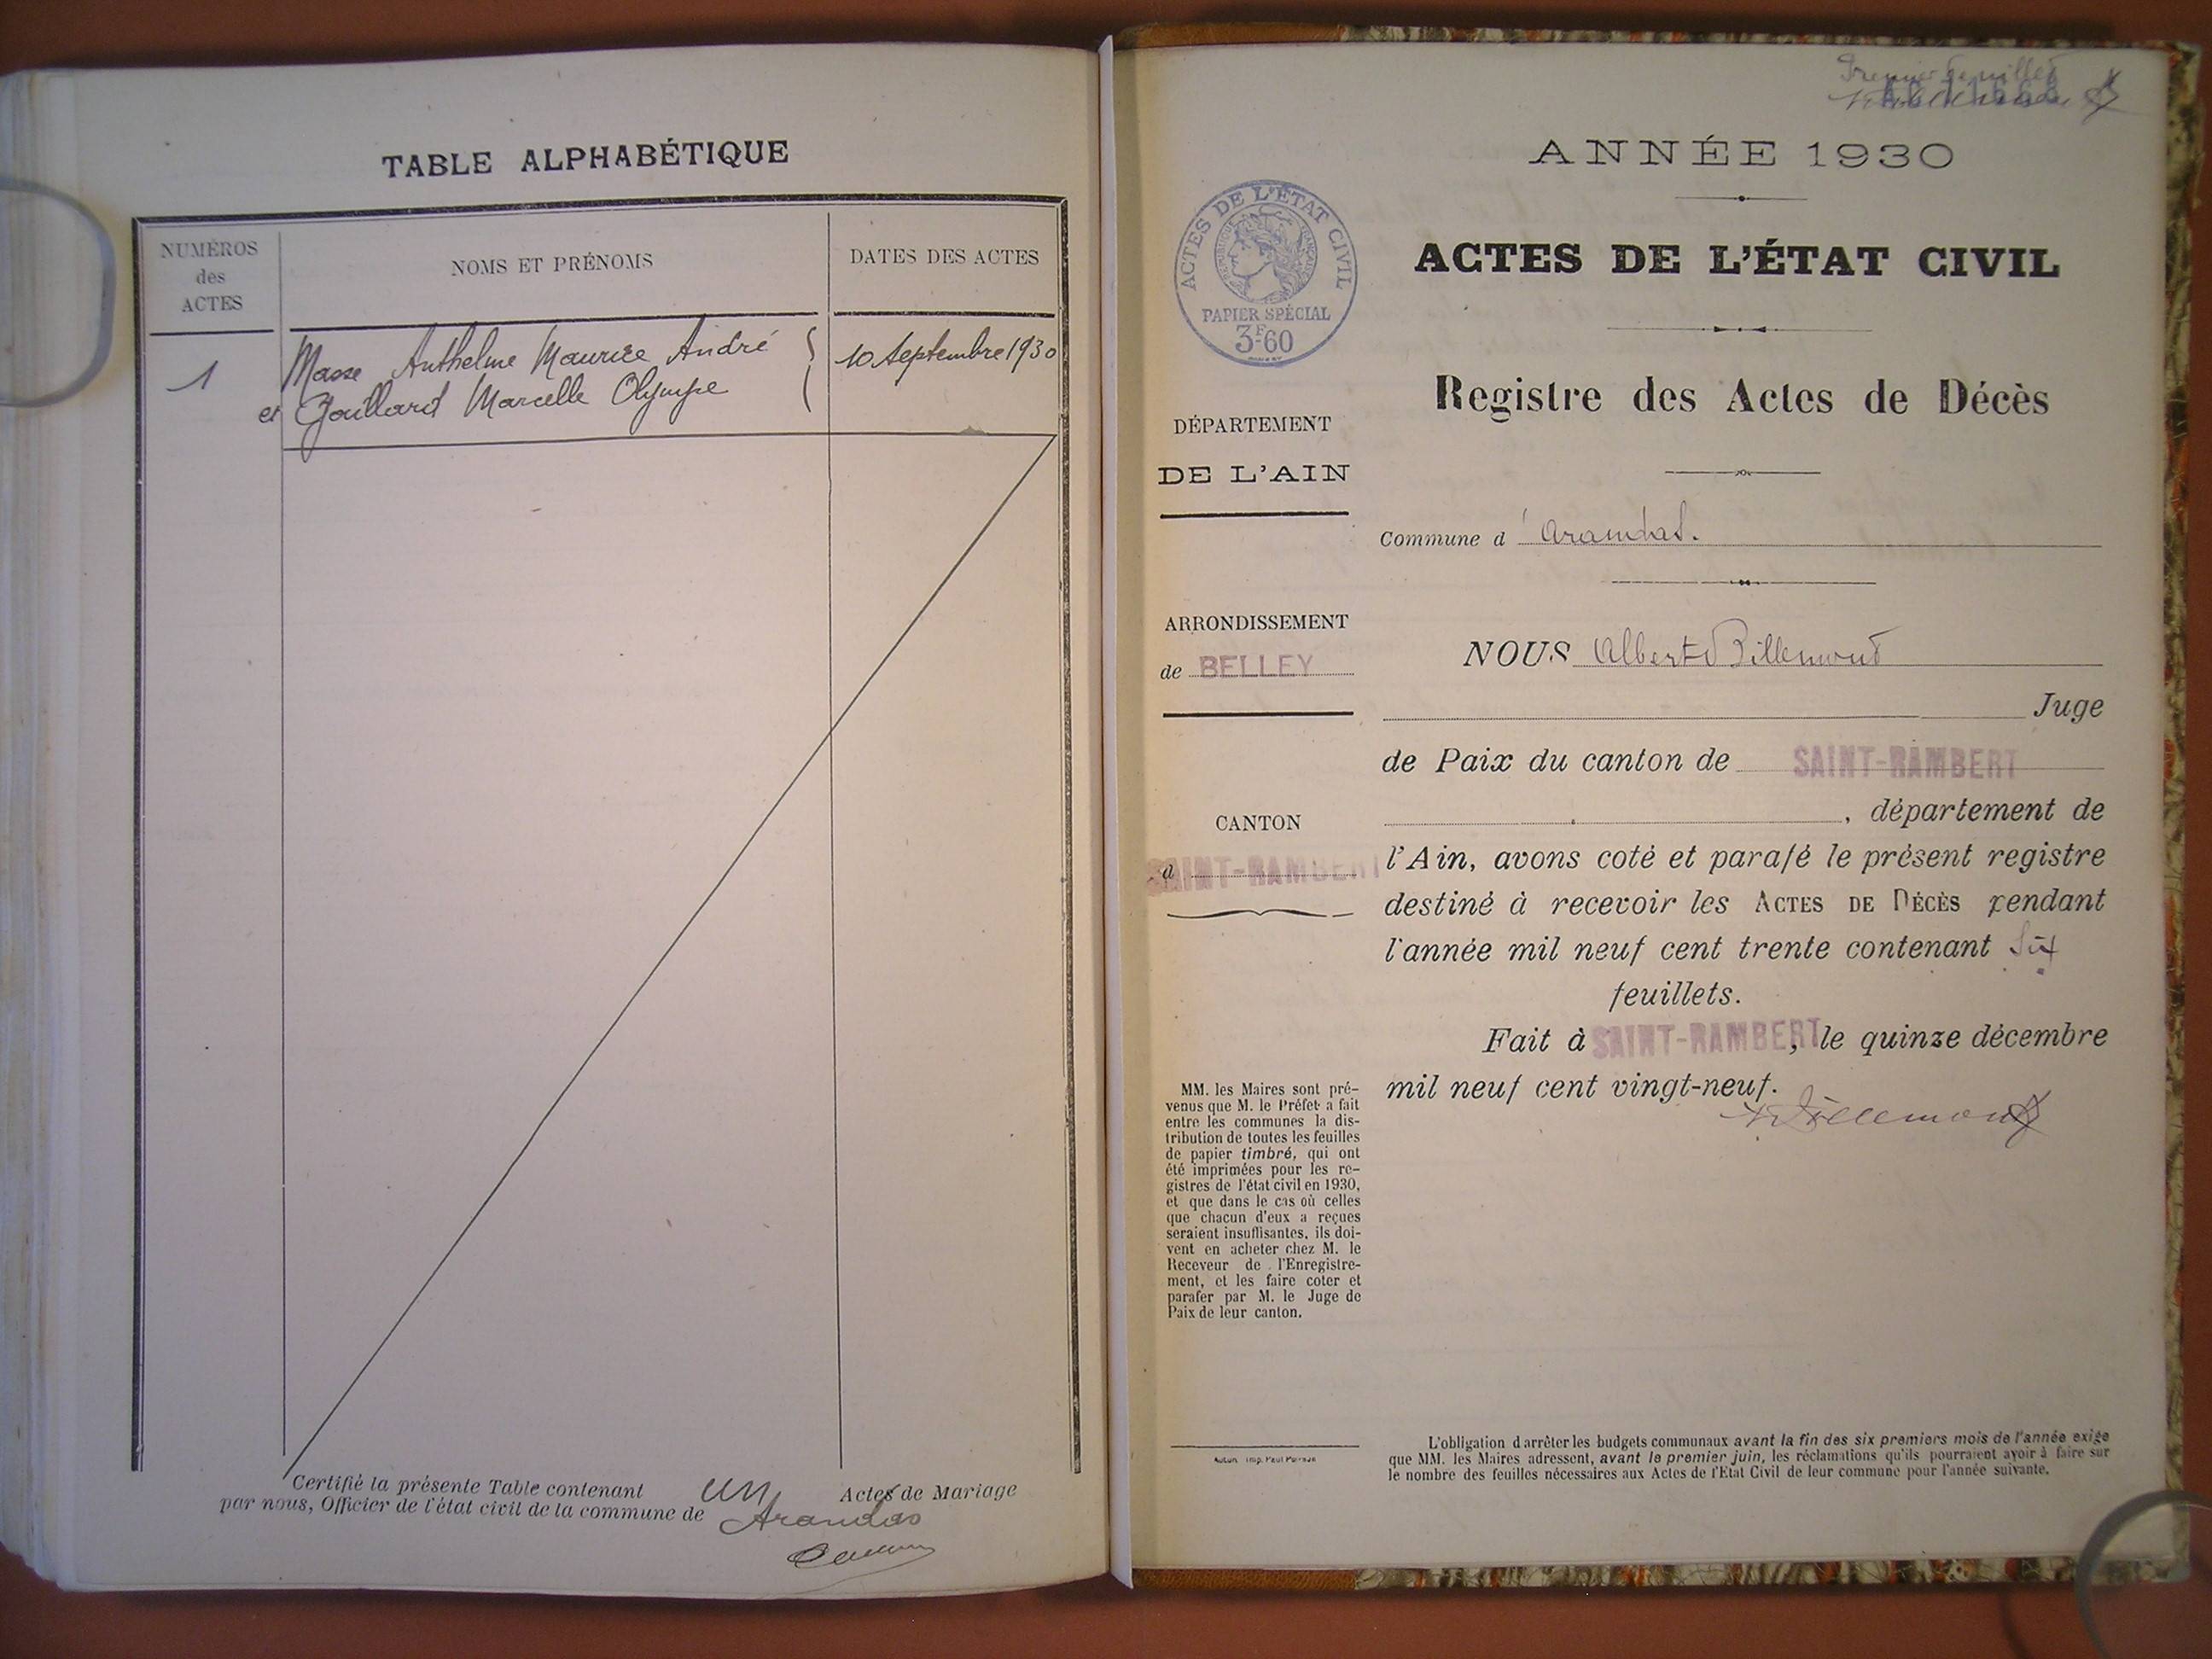 TABLE ALPHABÉTIQUE
NUMÉROS
des
ACTES
NOMS ET PRÉNOMS
DATES DES ACTES
1
Masse Anthelme Maurice André
10 Septembre 1930
et Gaillard Marcelle Olympe
Certifié la présente Table contenant un Actes de Mariage
par nous, Officier de l'état civil de la commune de Arandas
Premier feuillet
ANNÉE 1930
ACTES DE L'ÉTAT CIVIL
RÉPUBLIQUE FRANÇAISE
PAPIER SPÉCIAL
3F60
ACTES DE L'ÉTAT CIVIL
Registre des Actes de Décès
DÉPARTEMENT
DE L'AIN
Commune d'Arandas.
ARRONDISSEMENT
de BELLEY
NOUS Albert Billemont
Juge
de Paix du canton de SAINT-RAMBERT
, département de
CANTON
d SAINT-RAMBERT
l'Ain, avons coté et parafé le présent registre
destiné à recevoir les ACTES DE DÉCÈS pendant
l'année mil neuf cent trente contenant six
feuillets.
Fait à SAINT-RAMBERT, le quinze décembre
mil neuf cent vingt-neuf.
Billemont
MM. les Maires sont pré-
venus que M. le Préfet a fait
entre les communes la dis-
tribution de toutes les feuilles
de papier timbré, qui ont
été imprimées pour les re-
gistres de l'état civil en 1930,
et que dans le cas où celles
que chacun d'eux a reçues
seraient insuffisantes, ils doi-
vent en acheter chez M. le
Receveur de l'Enregistre-
ment, et les faire coter et
parafer par M. le Juge de
Paix de leur canton.
L'obligation d'arrêter les budgets communaux avant la fin des six premiers mois de l'année exige
que MM. les Maires adressent, avant le premier juin, les réclamations qu'ils pourraient avoir à faire sur
le nombre des feuilles nécessaires aux Actes de l'Etat Civil de leur commune pour l'année suivante.